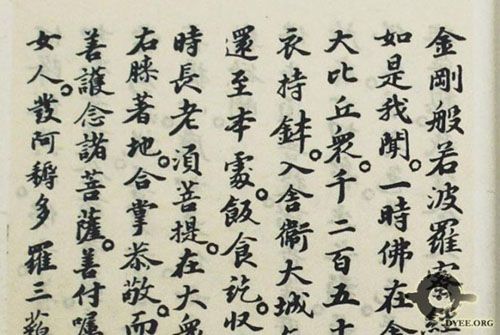 金剛般若波羅蜜經
如是我聞。一時佛在舍
大比丘衆。千二百五十
衣持鉢。入舍衞大城乞
還至本處。飯食訖。收
時長老須菩提。在大衆
右膝著地。合掌恭敬。而
善護念諸菩薩。善付囑
女人。發阿耨多羅三藐
DYEE.ORG